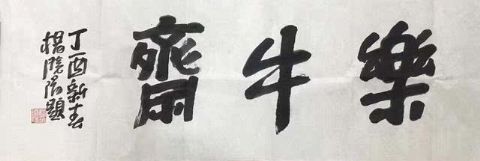 樂牛齋
丁酉新春
楊曉陽題